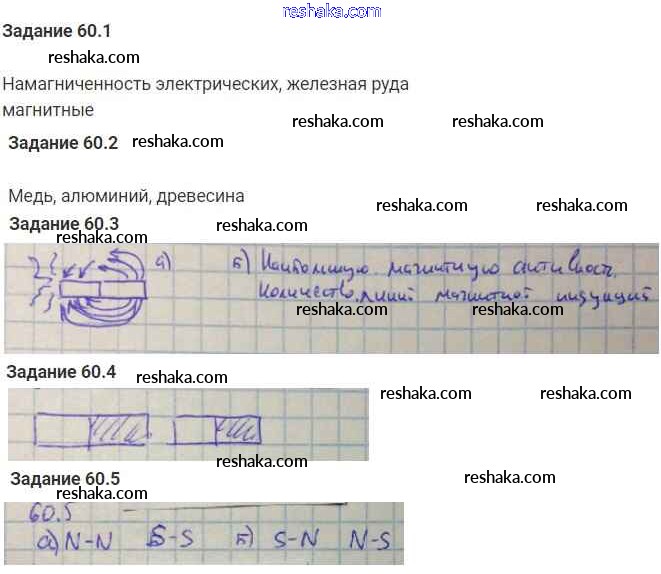 reshaka.com
Задание 60.1
reshaka.com
Намагниченность электрических, железная руда
магнитные
reshaka.com reshaka.com
Задание 60.2 reshaka.com
Медь, алюминий, древесина
reshaka.com
Задание 60.3
reshaka.com
а) б) Наибольшую магнитную активность.
Количество линий магнитной индукций
reshaka.com reshaka.com
Задание 60.4
reshaka.com
reshaka.com reshaka.com
reshaka.com
Задание 60.5
reshaka.com reshaka.com
60.5
а) N-N S-S б) S-N N-S
reshaka.com